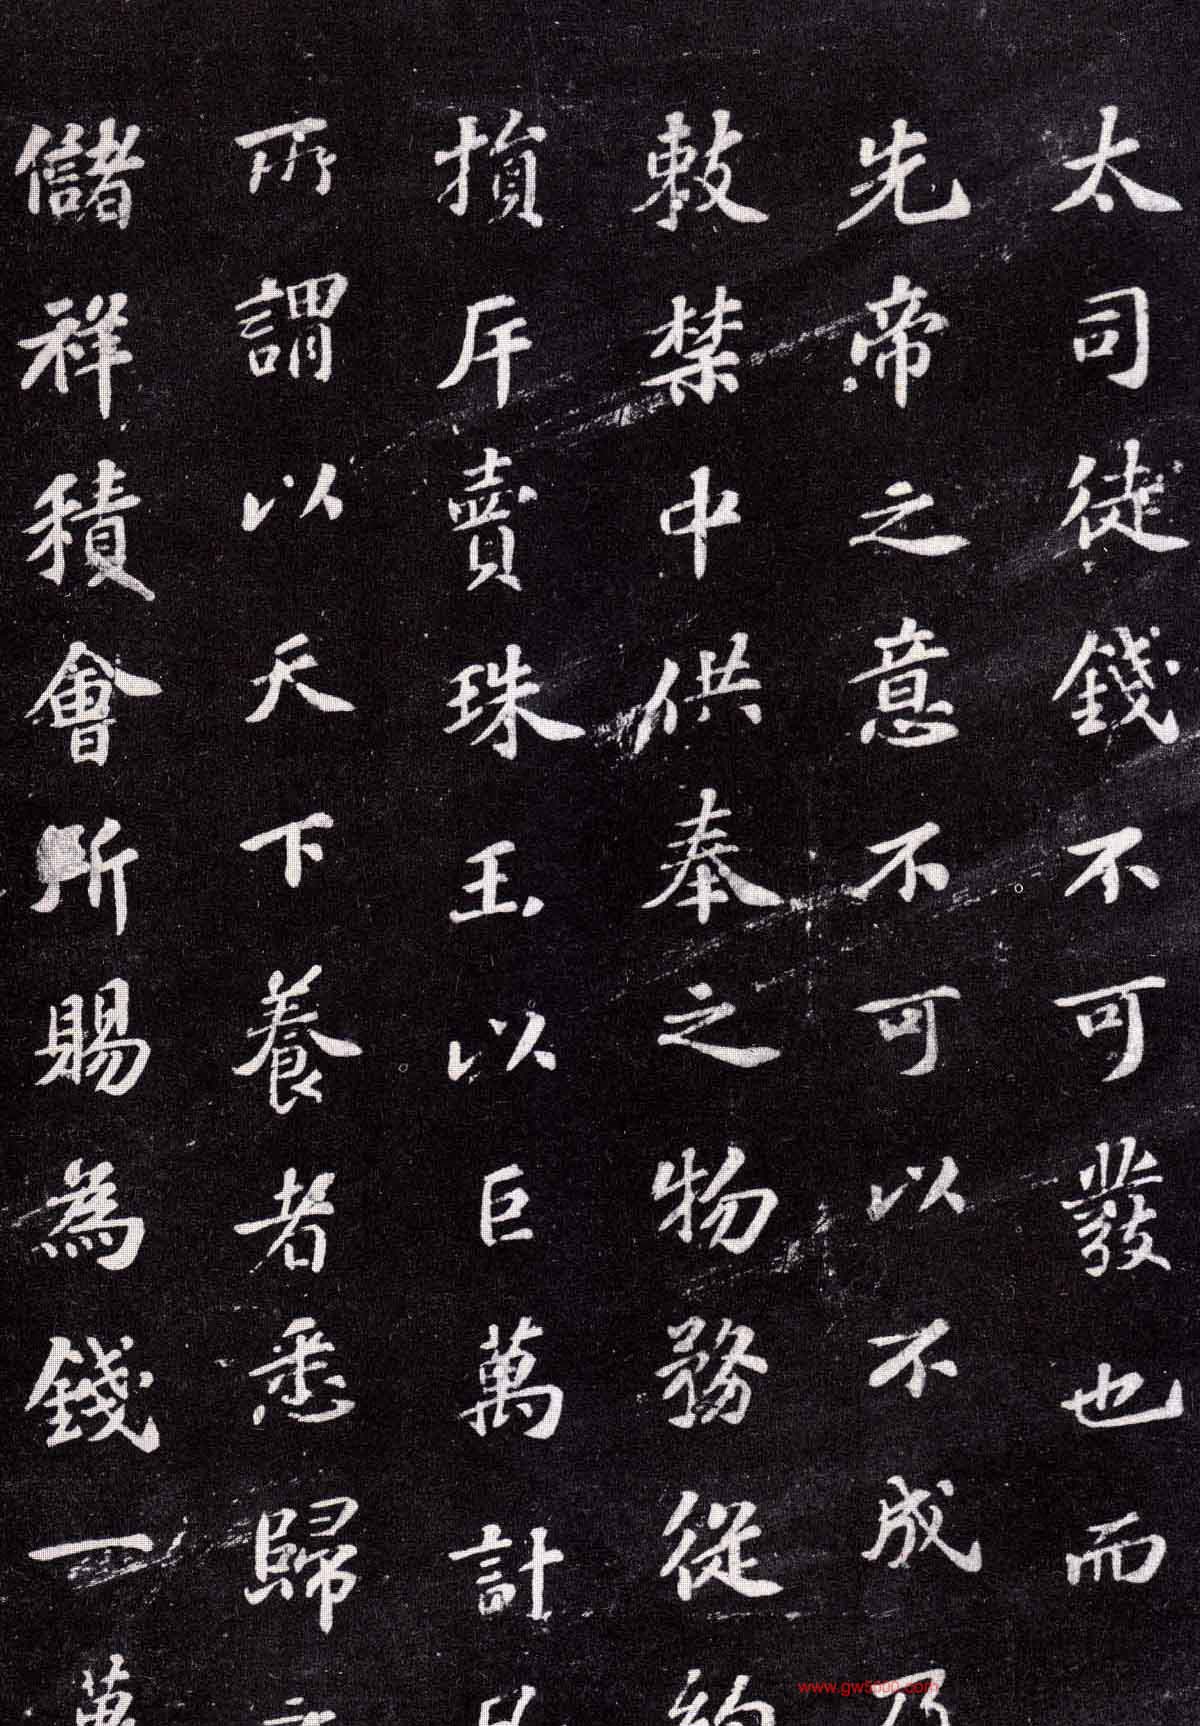 太司徒錢不可發也而
先帝之意不可以不成乃
敕禁中供奉之物務從約
損斥賣珠玉以巨萬計凡
所謂以天下養者悉歸之
儲祥積會所賜為錢一萬
www.gw5000.com